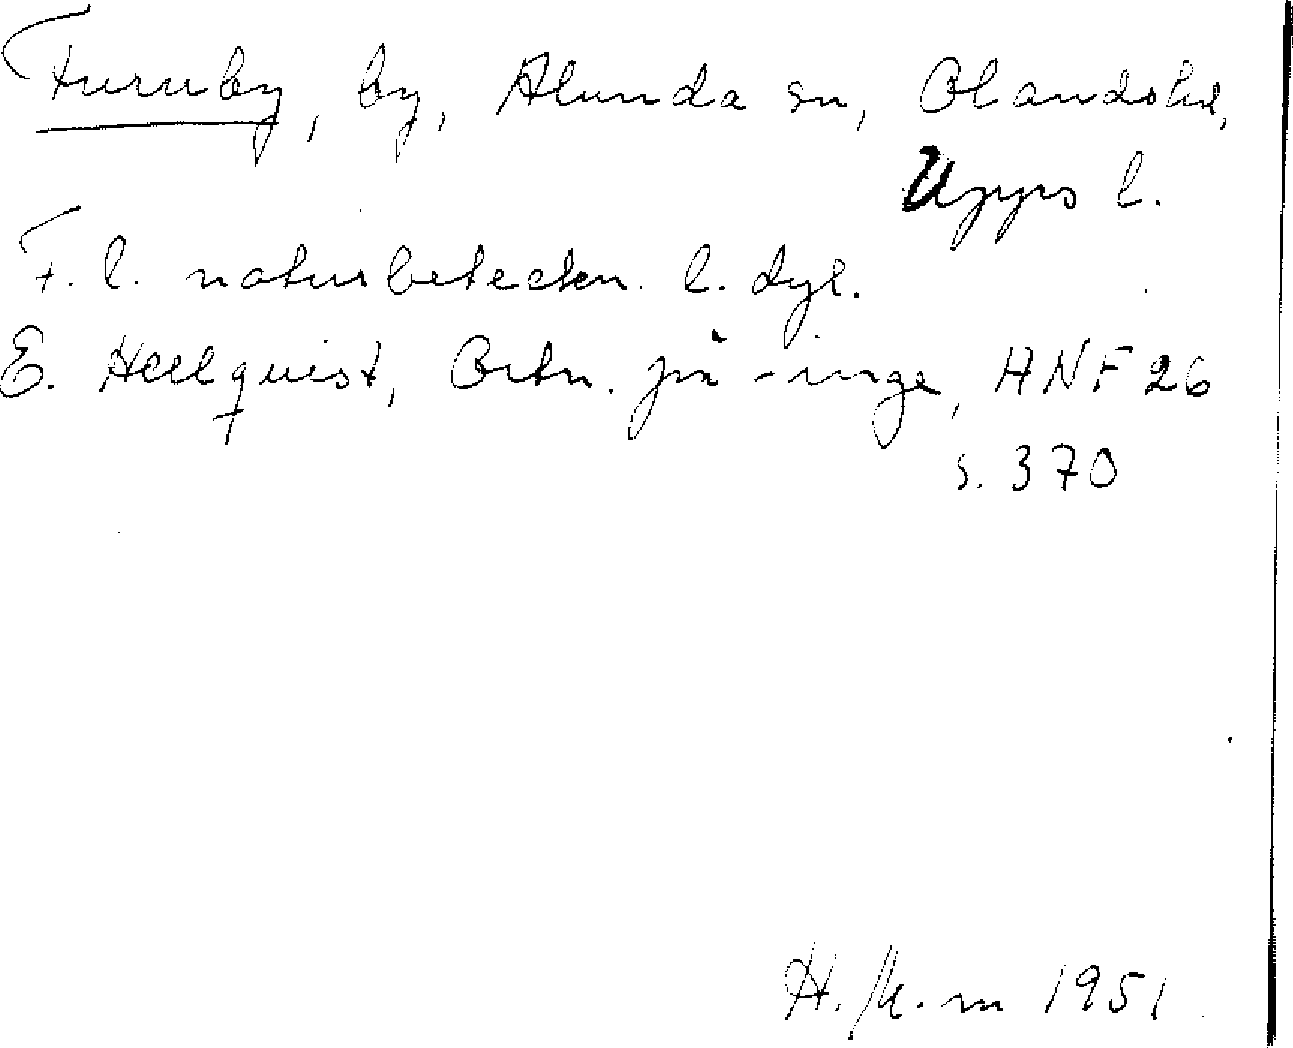 Furuby, by, Alunda sn, Olandshd,
Upps l.
F. l. naturbeteckn. l. dyl.
E. Hellquist, Ortn. på -inge, ANF 26
s. 370
1951